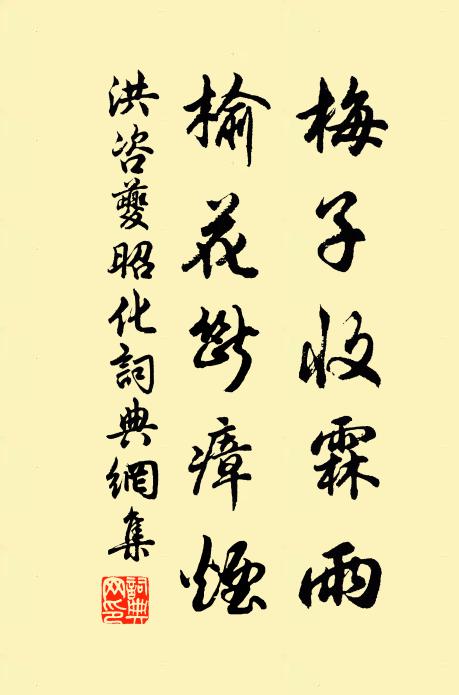 梅子收霖雨
榆花斷瘴煙
洪咨夔昭化詞典網集
詞典网印